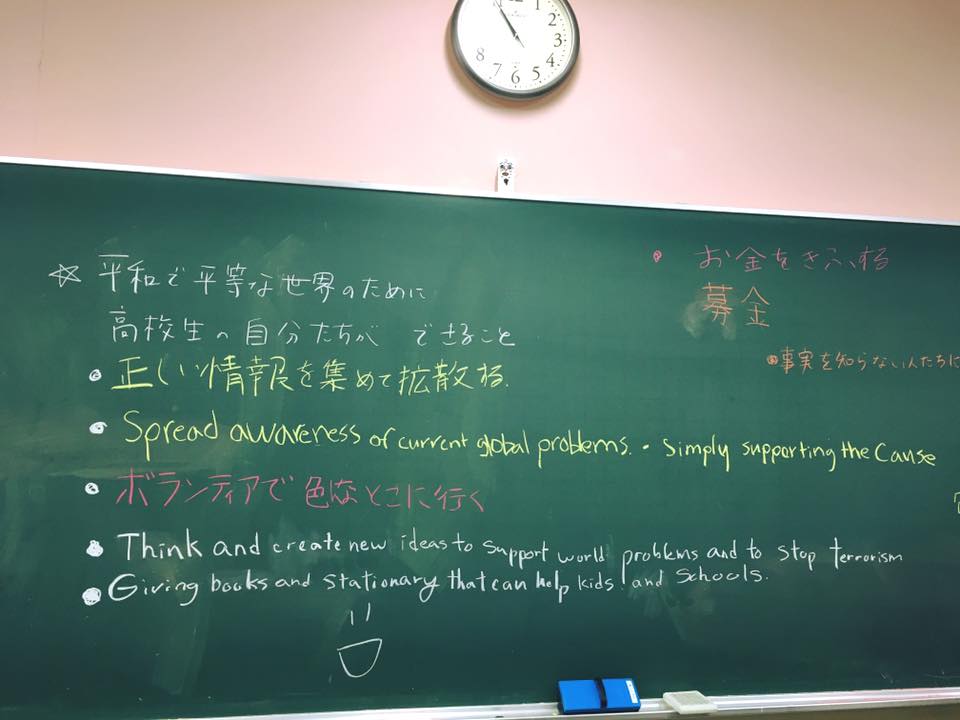 ☆ 平和で平等な世界のために
高校生の自分たちが できること
• 正しい情報を集めて拡散する.
• Spread awareness of current global problems. • Simply supporting the Cause
• ボランティアで色なとこに行く
• Think and create new ideas to support world problems and to stop terrorism
• Giving books and stationary that can help kids and schools.
• お金をきふする
募金
• 事実を知らない人たちに
12 1 2 3 4 5 6 7 8